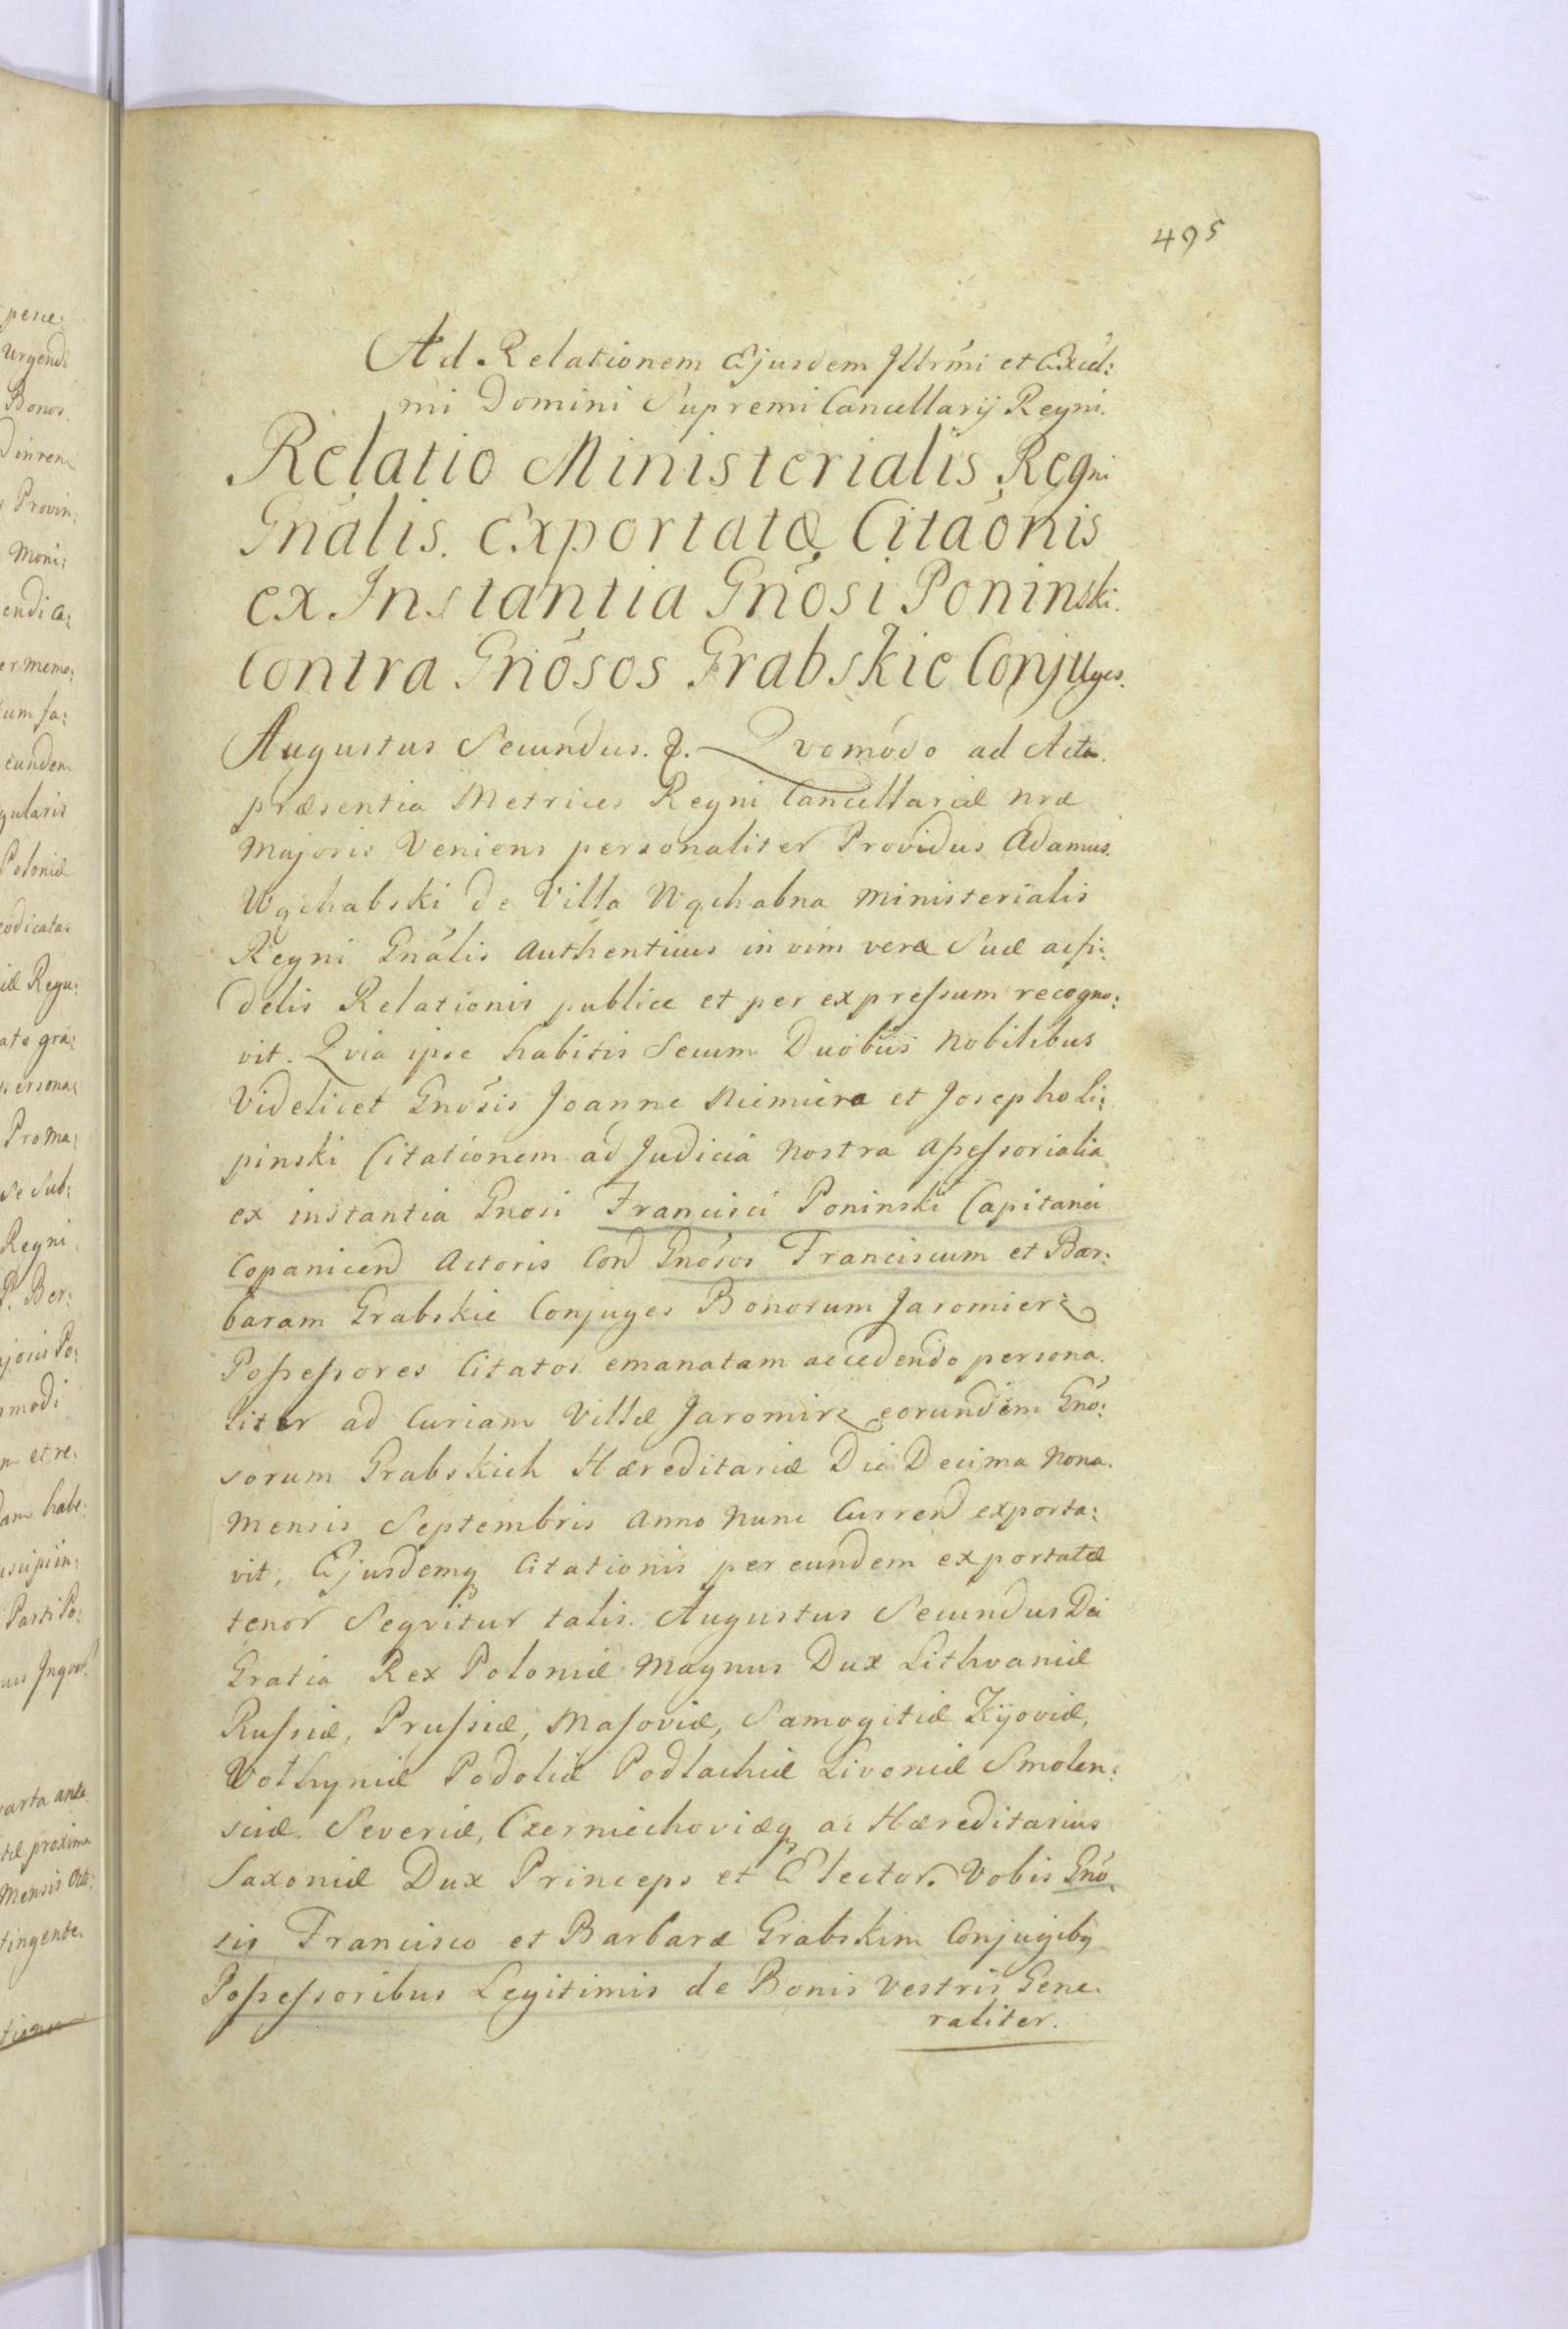 495
Ad Relationem Ejusdem Illrm̃i et Excel:
mi Domini Supremi Cancellarij Regni.
Relatio Ministerialis Regni
Gnãlis. Exportatæ Citaõnis
ex Instantia Gnõsi Poninski.
Contra Gnõsos Grabskie Conjuges.
Augustus Secundus. &. Qvomodo ad Acta
præsentia Metrices Regni Cancellariæ nræ
Majoris Veniens personaliter Providus Adamus.
Wąchabski de Villa Wąchabna Ministerialis
Regni Gnãlis Authenticus in vim veræ Suæ acfi:
delis Relationis publice et per expreſsum recogno:
vit. Qvia ipse habitis Secum Duobus Nobilibus
Videlicet Gnõsis Joanne Niemiera et Josepho Li:
pinski Citationem ad Judicia Nostra Aſseſsorialia
ex instantia Gnosi Francisci Poninski Capitanei
Copanicen̄ Actoris Con̄ Gnõsos Franciscum et Bar:
baram Grabskie Conjuges Bonorum Jaromierz
Poſseſsores Citatos emanatam accedendo persona.
liter ad Curiam Villæ Jaromirz eorundem Gnõ:
sorum Grabskich Hæreditariæ Die Decima Nona.
Mensis Septembris Anno Nunc Curren̄ exporta:
vit, Ejusdemq Citationis per eundem exportatæ
tenor Seqvitur talis. Augustus Secundus Dei
Gratia Rex Poloniæ Magnus Dux Lithvaniæ
Ruſsiæ, Pruſsiæ, Maſoviæ, Samogitiæ Kijoviæ,
Volhyniæ Podoliæ Podlachiæ Livoniæ Smolen:
sciæ. Severiæ, Czerniechoviæq ac Hæreditarius
Saxoniæ Dux Princeps et Elector. Vobis Gnõ
sis Francisco et Barbaræ Grabskim Conjugibq
Poſseſsoribus Legitimis de Bonis Vestris Gene.
raliter.